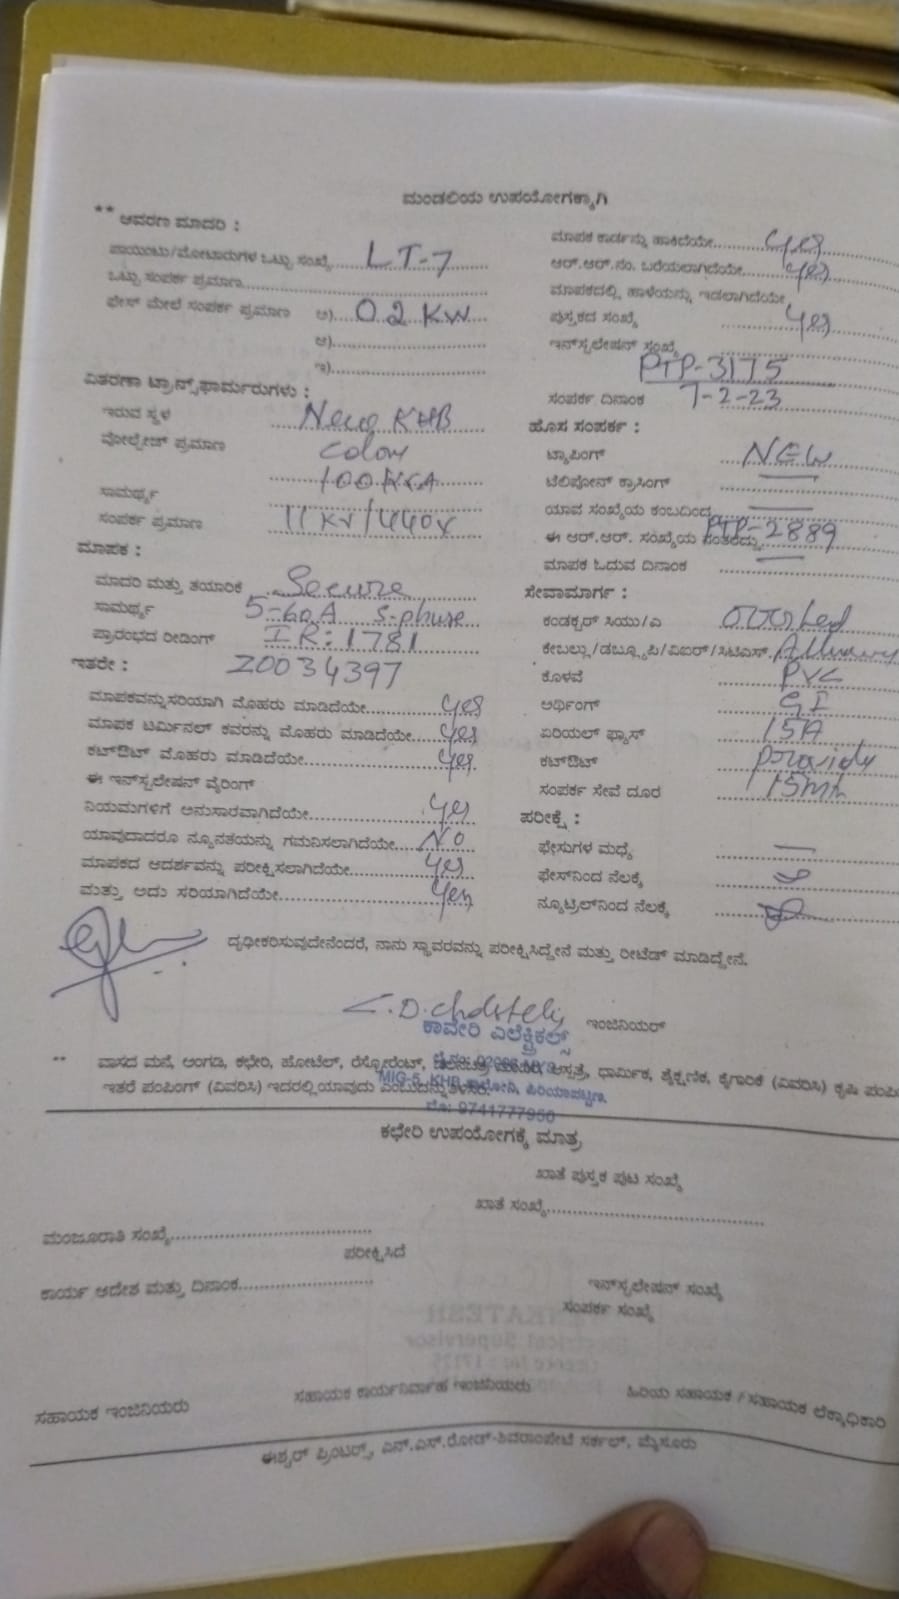 ಮಂಡಲಿಯ ಉಪಯೋಗಕ್ಕಾಗಿ
** ಆವರಣ ಮಾದರಿ :
ಪಾಯಿಂಟು/ಮೋಟಾರುಗಳ ಒಟ್ಟು ಸಂಖ್ಯೆ LT-7
ಒಟ್ಟು ಸಂಪರ್ಕ ಪ್ರಮಾಣ
ಫೇಸ್ ಮೇಲೆ ಸಂಪರ್ಕ ಪ್ರಮಾಣ ಅ) 0.2 KW
ಆ)
ಇ)
ವಿತರಣಾ ಟ್ರಾನ್ಸ್‌ಫಾರ್ಮರುಗಳು :
ಇರುವ ಸ್ಥಳ New KHB
ವೋಲ್ಟೇಜ್ ಪ್ರಮಾಣ Colony
100 KVA
ಸಾಮರ್ಥ್ಯ
ಸಂಪರ್ಕ ಪ್ರಮಾಣ 11 KV/440V
ಮಾಪಕ :
ಮಾದರಿ ಮತ್ತು ತಯಾರಿಕೆ Secure
ಸಾಮರ್ಥ್ಯ 5-60A S-phase
ಪ್ರಾರಂಭದ ರೀಡಿಂಗ್ IR: 1781
ಇತರೇ : Z0034397
ಮಾಪಕವನ್ನು ಸರಿಯಾಗಿ ಮೊಹರು ಮಾಡಿದೆಯೇ yes
ಮಾಪಕ ಟರ್ಮಿನಲ್ ಕವರನ್ನು ಮೊಹರು ಮಾಡಿದೆಯೇ yes
ಕಟ್‌ಔಟ್ ಮೊಹರು ಮಾಡಿದೆಯೇ yes
ಈ ಇನ್‌ಸ್ಟಲೇಷನ್ ವೈರಿಂಗ್
ನಿಯಮಗಳಿಗೆ ಅನುಸಾರವಾಗಿದೆಯೇ yes
ಯಾವುದಾದರೂ ನ್ಯೂನತೆಯನ್ನು ಗಮನಿಸಲಾಗಿದೆಯೇ NO
ಮಾಪಕದ ಆದರ್ಶವನ್ನು ಪರೀಕ್ಷಿಸಲಾಗಿದೆಯೇ yes
ಮತ್ತು ಅದು ಸರಿಯಾಗಿದೆಯೇ yes
ಮಾಪಕ ಕಾರ್ಡನ್ನು ಹಾಕಿದೆಯೇ yes
ಆರ್.ಆರ್.ನಂ. ಬರೆಯಲಾಗಿದೆಯೇ yes
ಮಾಪಕದಲ್ಲಿ ಹಾಳೆಯನ್ನು ಇಡಲಾಗಿದೆಯೇ
ಪುಸ್ತಕದ ಸಂಖ್ಯೆ yes
ಇನ್‌ಸ್ಟಲೇಷನ್ ಸಂಖ್ಯೆ
PTP-3175
ಸಂಪರ್ಕ ದಿನಾಂಕ 7-2-23
ಹೊಸ ಸಂಪರ್ಕ :
ಟ್ಯಾಪಿಂಗ್ NEW
ಟೆಲಿಪೋನ್ ಕ್ರಾಸಿಂಗ್
ಯಾವ ಸಂಖ್ಯೆಯ ಕಂಬದಿಂದ
ಈ ಆರ್.ಆರ್. ಸಂಖ್ಯೆಯ ನಂತರದ್ದು PTP-2889
ಮಾಪಕ ಓದುವ ದಿನಾಂಕ
ಸೇವಾಮಾರ್ಗ :
ಕಂಡಕ್ಟರ್ ಸಿಯು/ಎ
ಕೇಬಲ್ಲು/ಡಬ್ಲ್ಯೂಪಿ/ವಿಐರ್/ಸಿಟಿಎಸ್.
ಕೊಳವೆ PVC
ಅರ್ಥಿಂಗ್ GI
ಏರಿಯಲ್ ಫ್ಯೂಸ್ 15A
ಕಟ್‌ಔಟ್ provide
ಸಂಪರ್ಕ ಸೇವೆ ದೂರ
ಪರೀಕ್ಷೆ :
ಫೇಸುಗಳ ಮಧ್ಯೆ
ಫೇಸ್‌ನಿಂದ ನೆಲಕ್ಕೆ
ನ್ಯೂಟ್ರಲ್‌ನಿಂದ ನೆಲಕ್ಕೆ
ದೃಢೀಕರಿಸುವುದೇನೆಂದರೆ, ನಾನು ಸ್ಥಾವರವನ್ನು ಪರೀಕ್ಷಿಸಿದ್ದೇನೆ ಮತ್ತು ರೀಟೆಡ್ ಮಾಡಿದ್ದೇನೆ.
ಇಂಜಿನಿಯರ್
ಕಾವೇರಿ ಎಲೆಕ್ಟ್ರಿಕಲ್ಸ್
** ವಾಸದ ಮನೆ, ಅಂಗಡಿ, ಕಛೇರಿ, ಹೋಟೆಲ್, ರೆಸ್ಟೋರೆಂಟ್, ಆಸ್ಪತ್ರೆ, ಧಾರ್ಮಿಕ, ಶೈಕ್ಷಣಿಕ, ಕೈಗಾರಿಕೆ (ವಿವರಿಸಿ) ಕೃಷಿ ಪಂಪಿ
ಇತರೆ ಪಂಪಿಂಗ್ (ವಿವರಿಸಿ) ಇದರಲ್ಲಿ ಯಾವುದು ಎಂಬುದನ್ನು ತಿಳಿಸಿರಿ.
MIG-5, KHB ಕಾಲೋನಿ, ಪಿರಿಯಾಪಟ್ಟಣ.
ಮೊ: 9741777950
ಕಛೇರಿ ಉಪಯೋಗಕ್ಕೆ ಮಾತ್ರ
ಖಾತೆ ಪುಸ್ತಕ ಪುಟ ಸಂಖ್ಯೆ
ಖಾತೆ ಸಂಖ್ಯೆ
ಮಂಜೂರಾತಿ ಸಂಖ್ಯೆ
ಪರೀಕ್ಷಿಸಿದೆ
ಕಾರ್ಯ ಆದೇಶ ಮತ್ತು ದಿನಾಂಕ
ಇನ್‌ಸ್ಟಲೇಷನ್ ಸಂಖ್ಯೆ
ಸಂಪರ್ಕ ಸಂಖ್ಯೆ
ಸಹಾಯಕ ಇಂಜಿನಿಯರು
ಸಹಾಯಕ ಕಾರ್ಯನಿರ್ವಾಹ ಇಂಜಿನಿಯರು
ಹಿರಿಯ ಸಹಾಯಕ / ಸಹಾಯಕ ಲೆಕ್ಕಾಧಿಕಾರಿ
ಈಶ್ವರ್ ಪ್ರಿಂಟರ್ಸ್, ಎನ್.ಎಸ್.ರೋಡ್-ಶಿವರಾಂಪೇಟೆ ಸರ್ಕಲ್, ಮೈಸೂರು